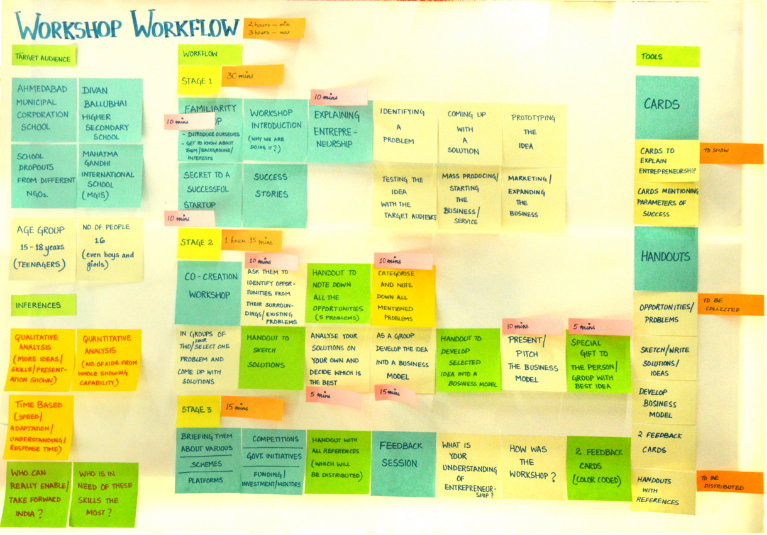 WORKSHOP WORKFLOW
2 hours - min
3 hours - max
TARGET AUDIENCE
AHMEDABAD
MUNICIPAL
CORPORATION
SCHOOL
DIVAN
BALLUBHAI
HIGHER
SECONDARY
SCHOOL
SCHOOL
DROPOUTS
FROM DIFFERENT
NGOs
MAHATMA
GANDHI
INTERNATIONAL
SCHOOL
(MGIS)
AGE GROUP
15 - 18 years
(TEENAGERS)
NO OF PEOPLE
16
(even boys and
girls)
INFERENCES
QUALITATIVE
ANALYSIS
(MORE IDEAS/
SKILLS/PRESENT-
ATION SHOWN)
QUANTITATIVE
ANALYSIS
(NO. OF KIDS FROM
WHOLE SHOWING
CAPABILITY)
TIME BASED
(SPEED/
ADAPTATION/
UNDERSTANDING/
RESPONSE TIME)
WHO CAN
REALLY ENABLE/
TAKE FORWARD
INDIA?
WHO IS IN
NEED OF THESE
SKILLS THE
MOST?
WORKFLOW
STAGE 1
30 mins
FAMILIARITY
UP
10 mins
- INTRODUCE OURSELVES
- GET TO KNOW ABOUT
THEM/BACKGROUND/
INTERESTS
WORKSHOP
INTRODUCTION
(WHY WE ARE
DOING IT?)
10 mins
EXPLAINING
ENTREPRE-
NEURSHIP
IDENTIFYING
A
PROBLEM
COMING UP
WITH
A
SOLUTION
PROTOTYPING
THE
IDEA
SECRET TO A
SUCCESSFUL
STARTUP
10 mins
SUCCESS
STORIES
TESTING THE
IDEA
WITH THE
TARGET AUDIENCE
MASS PRODUCING/
STARTING
THE
BUSINESS/
SERVICE
MARKETING/
EXPANDING
THE
BUSINESS
STAGE 2
1 hour 15 mins
CO-CREATION
WORKSHOP
10 mins
ASK THEM TO
IDENTIFY OPPOR-
TUNITIES FROM
THEIR SURROUN-
DINGS/EXISTING
PROBLEMS
HANDOUT TO
NOTE DOWN
ALL THE
OPPORTUNITIES
(5 PROBLEMS)
10 mins
CATEGORISE
AND NOTE
DOWN ALL
MENTIONED
PROBLEMS
IN GROUPS OF
TWO/FOUR SELECT ONE
PROBLEM AND
COME UP WITH
SOLUTIONS
HANDOUT TO
SKETCH
SOLUTIONS
ANALYSE YOUR
SOLUTIONS ON
YOUR OWN AND
DECIDE WHICH IS
THE BEST
5 mins
AS A GROUP
DEVELOP THE IDEA
INTO A BUSINESS
MODEL
15 mins
HANDOUT TO
DEVELOP
SELECTED
IDEA INTO A BUSINESS MODEL
10 mins
PRESENT/
PITCH
THE BUSINESS
MODEL
5 mins
SPECIAL
GIFT TO
THE PERSON/
GROUP WITH
BEST IDEA
STAGE 3
15 mins
BRIEFING THEM
ABOUT VARIOUS
SCHEMES
PLATFORMS
COMPETITIONS
GOVT. INITIATIVES
FUNDING/
INVESTMENT/
HANDOUT WITH
ALL REFERENCES
(WHICH WILL
BE DISTRIBUTED)
FEEDBACK
SESSION
WHAT IS
YOUR
UNDERSTANDING
OF
ENTREPRENEUR-
SHIP?
HOW WAS
THE
WORKSHOP?
2 FEEDBACK
CARDS
(COLOR CODED)
TOOLS
CARDS
CARDS TO
EXPLAIN
ENTREPRENEURSHIP
TO SHOW
CARDS MENTIONING
PARAMETERS OF
SUCCESS
HANDOUTS
OPPORTUNITIES/
PROBLEMS
TO BE
COLLECTED
SKETCH/WRITE
SOLUTIONS
/IDEAS
DEVELOP
BUSINESS
MODEL
2 FEEDBACK
CARDS
HANDOUTS
WITH
REFERENCES
TO BE
DISTRIBUTED